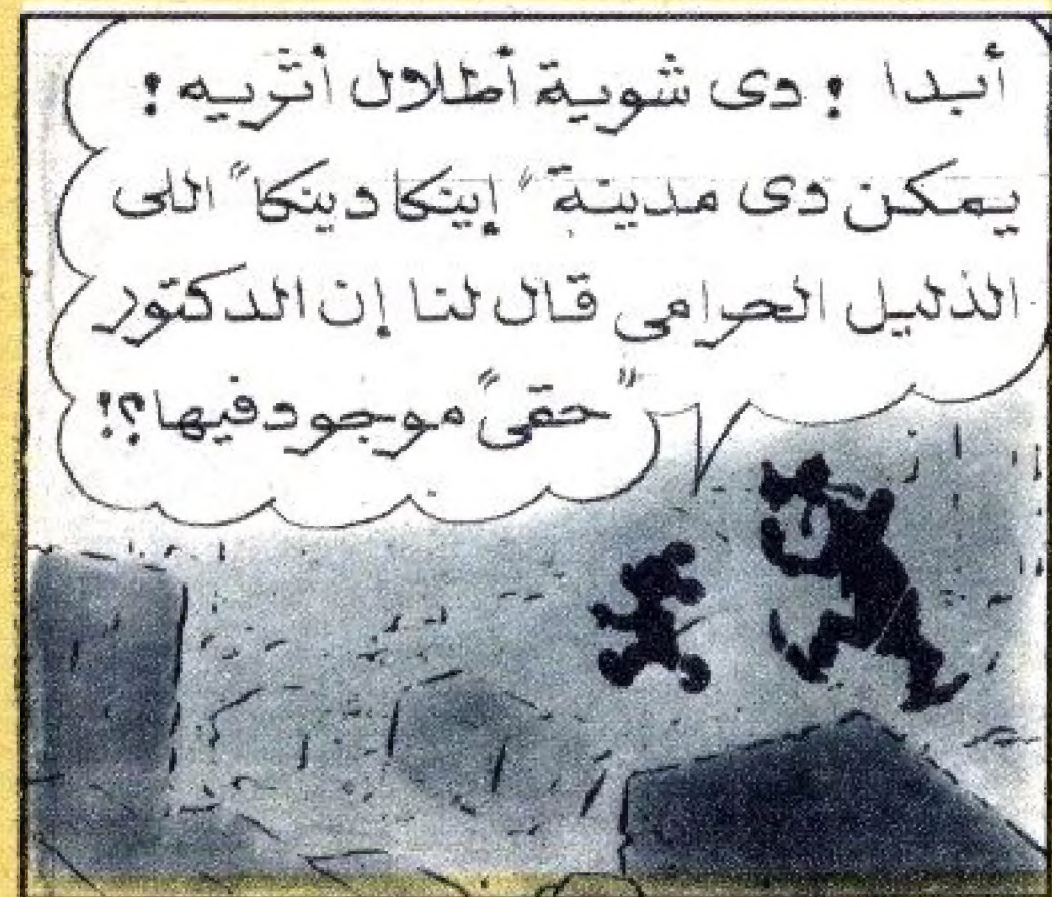 أبدا ! دى شوية أطلال أثريه !
يمكن دى مدينة "إينكا دينكا" اللى
الذليل الحرامى قال لنا إن الدكتور
"حقى" موجود فيها ؟!